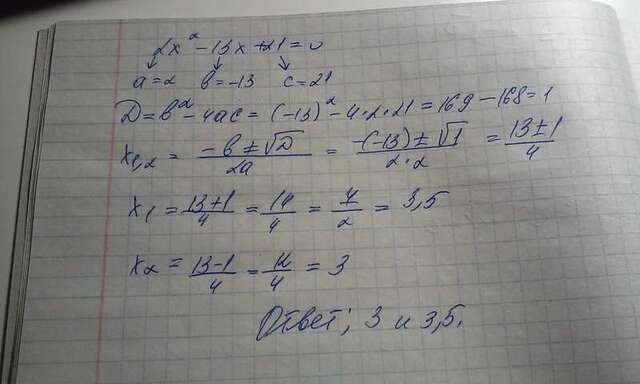 2x² - 13x + 21 = 0
a = 2 в = -13 с = 21
D = в² - 4ас = (-13)² - 4·2·21 = 169 - 168 = 1
x₁,₂ = (-в ± √D)/2a = (-(-13) ± √1)/2·2 = (13 ± 1)/4
x₁ = (13+1)/4 = 14/4 = 7/2 = 3,5
x₂ = (13-1)/4 = 12/4 = 3
Ответ; 3 и 3,5.